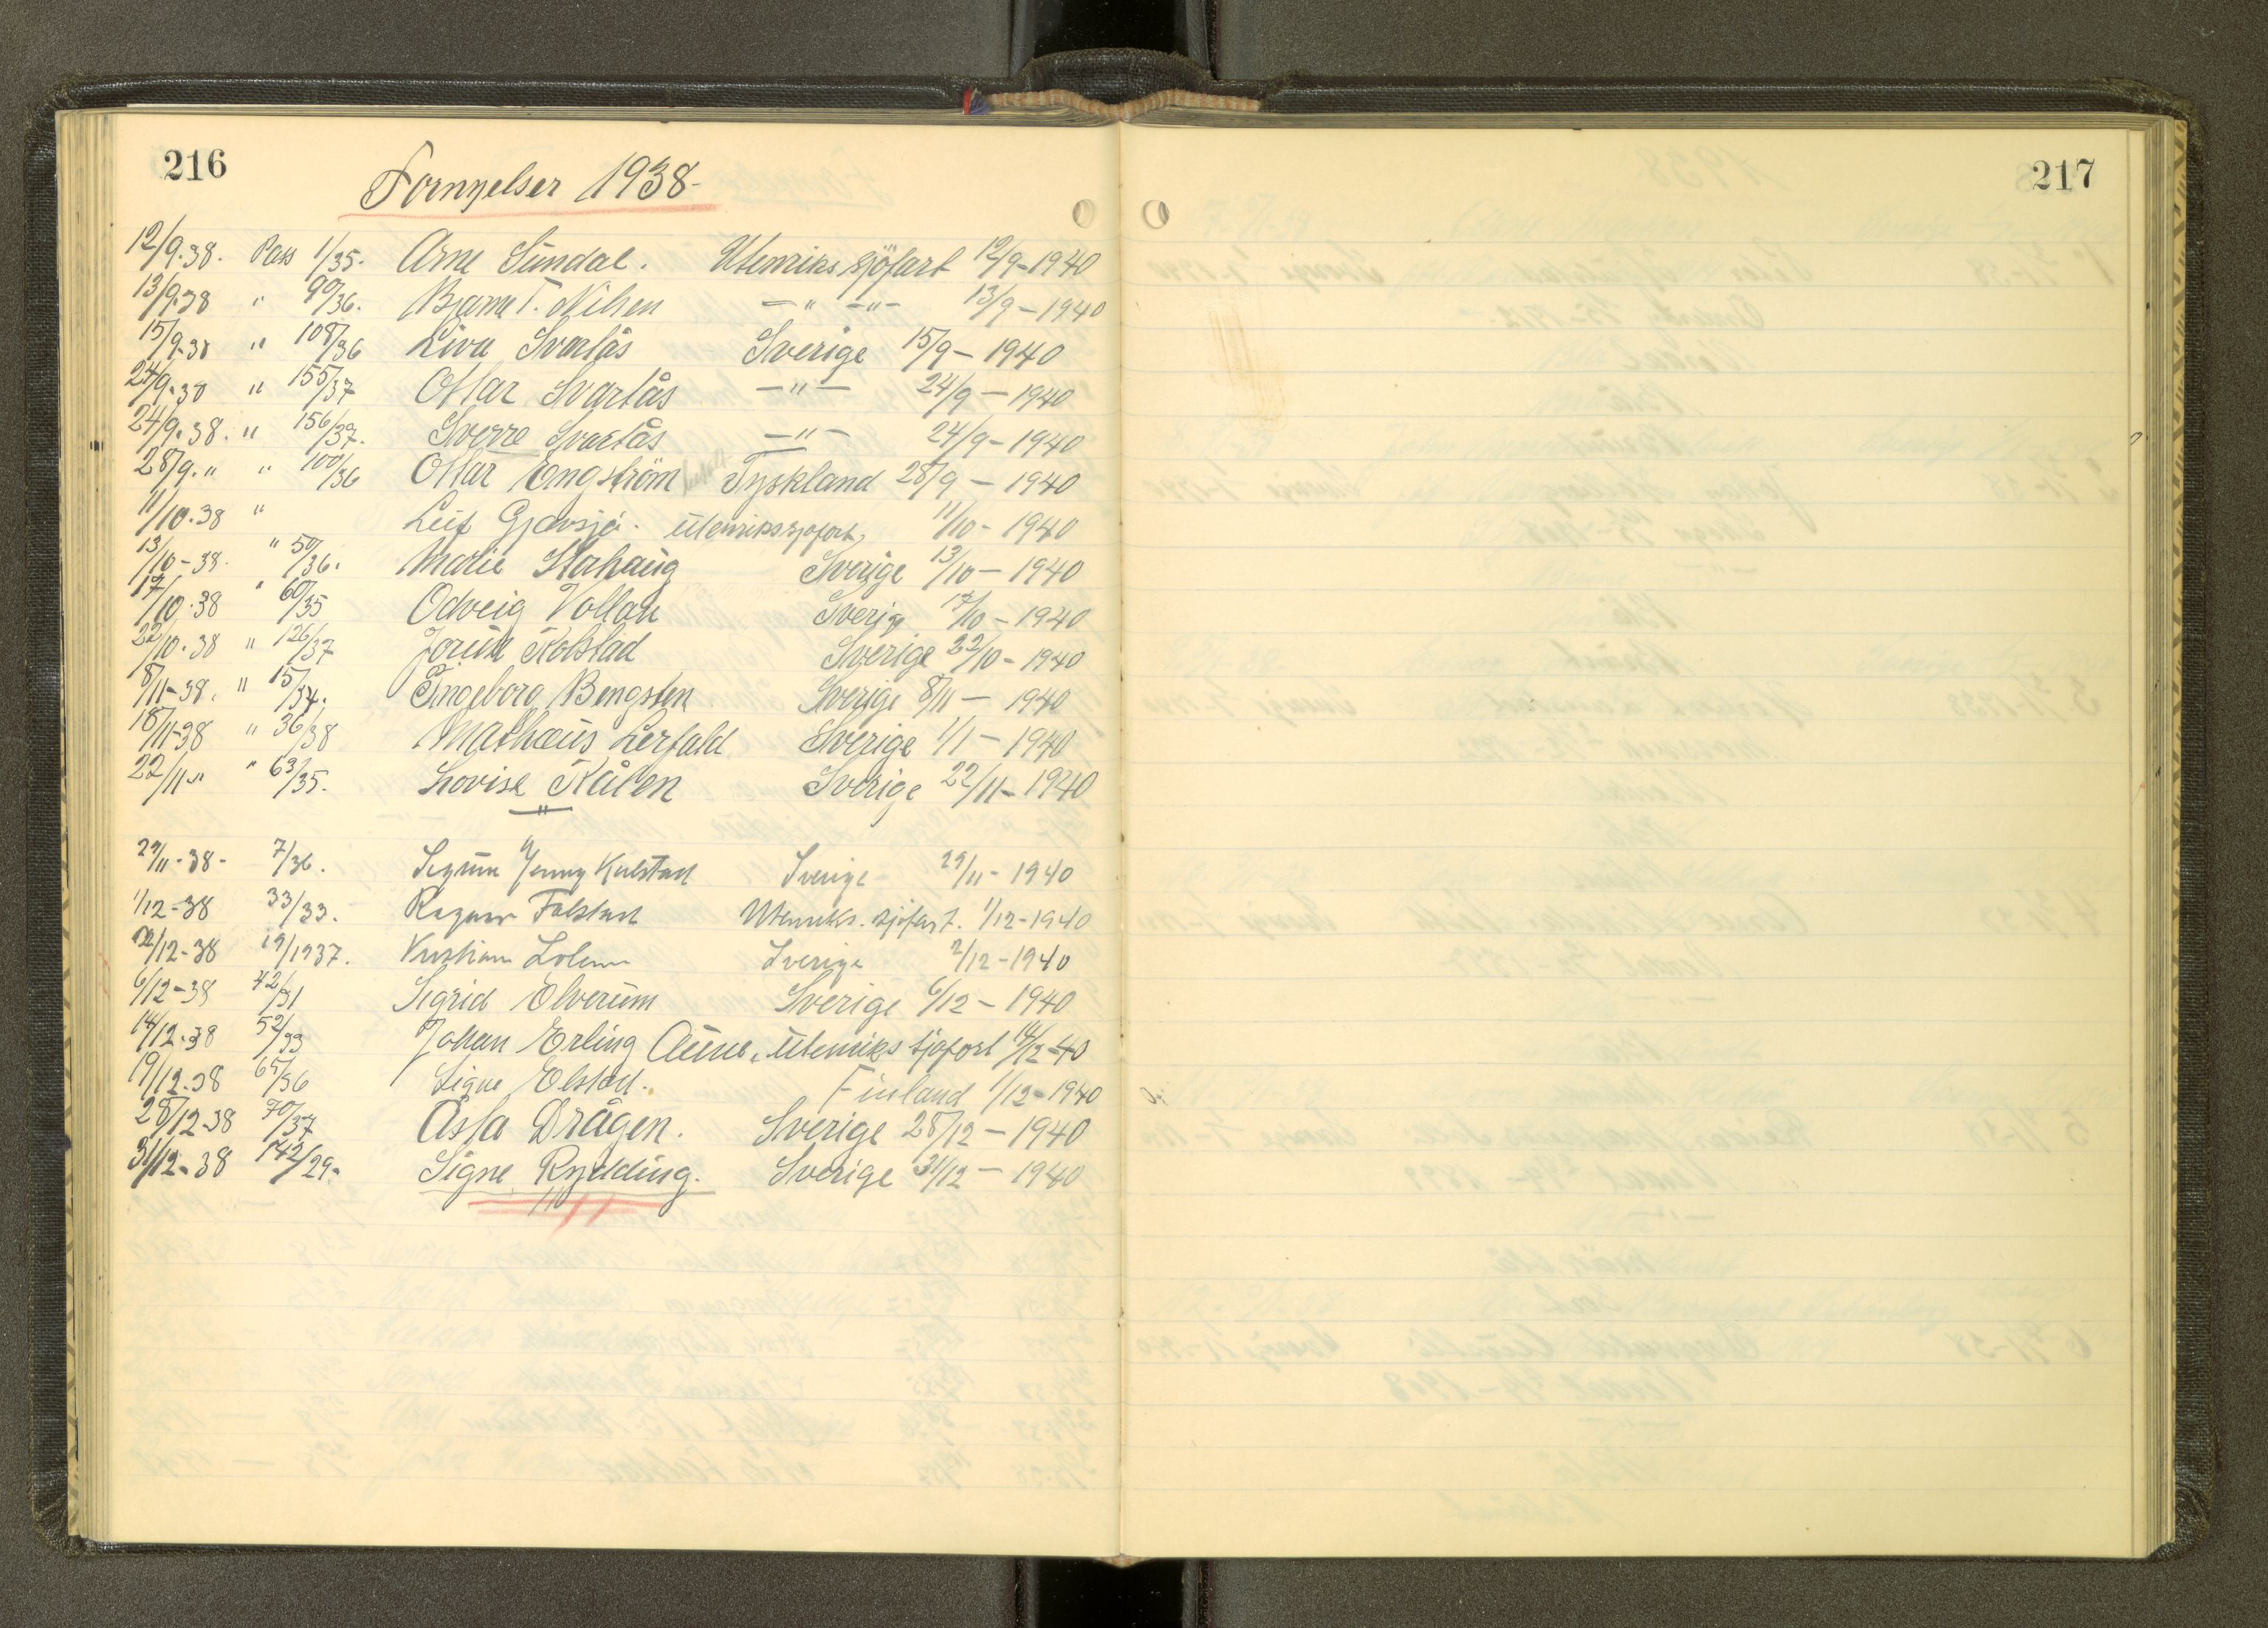 216
Fornyelser 1938-
12/9.38. Pass 1/35. Arne Sundal. Utenriks sjöfart 12/9-1940
13/9.38 " 90/36. Bjarne T. Nilsen -"- -"- 13/9-1940
15/9.38 " 108/36 Svartås Sverige 15/9-1940
24/9.38 " 155/37 Ottar Svartås -"- 24/9-1940
24/9.38. " 156/37. Sverre Svartås -"- 24/9-1940
28/9." " 100/36 Ottar Engström Tyskland 28/9-1940
11/10.38 " Leif Utenrikssjøfart, 11/10-1940
13/10-38. " 50/36. Marie Stahaug Sverige 13/10-1940
17/10.38 " 60/35 Odveig Vollan Sverige 17/10-1940
22/10.38 " 126/37 Jorun Kolstad Sverige 22/10-1940
8/11-38. " 15/34. Ingeborg Bengsten Sverige 8/11-1940
18/11-38 " 36/38 Mathæus Lerfald Sverige 1/1-1940
22/11-" " 63/35. Lovise Kålen Sverige 22/11-1940
-"-
29/11-38- 7/36. Jenny Sverige 29/11-1940
1/12-38 33/33. Ragnar Falstad Utenriks. sjöfart. 1/12-1940
2/12-38 19/1937. Kristian Sverige 2/12-1940
6/12-38 42/31 Sigrid Elverum Sverige 6/12-1940
14/12.38 52/33 Johan Erling Aune, Utenriks sjøfart 14/12-40
19/12.38 65/36 Signe Elstad. Finland 1/12-1940
28/12-38 70/37 Åsta Drågen. Sverige 28/12-1940
31/12-38 142/29- Signe Rydding. Sverige 31/12-1940
217